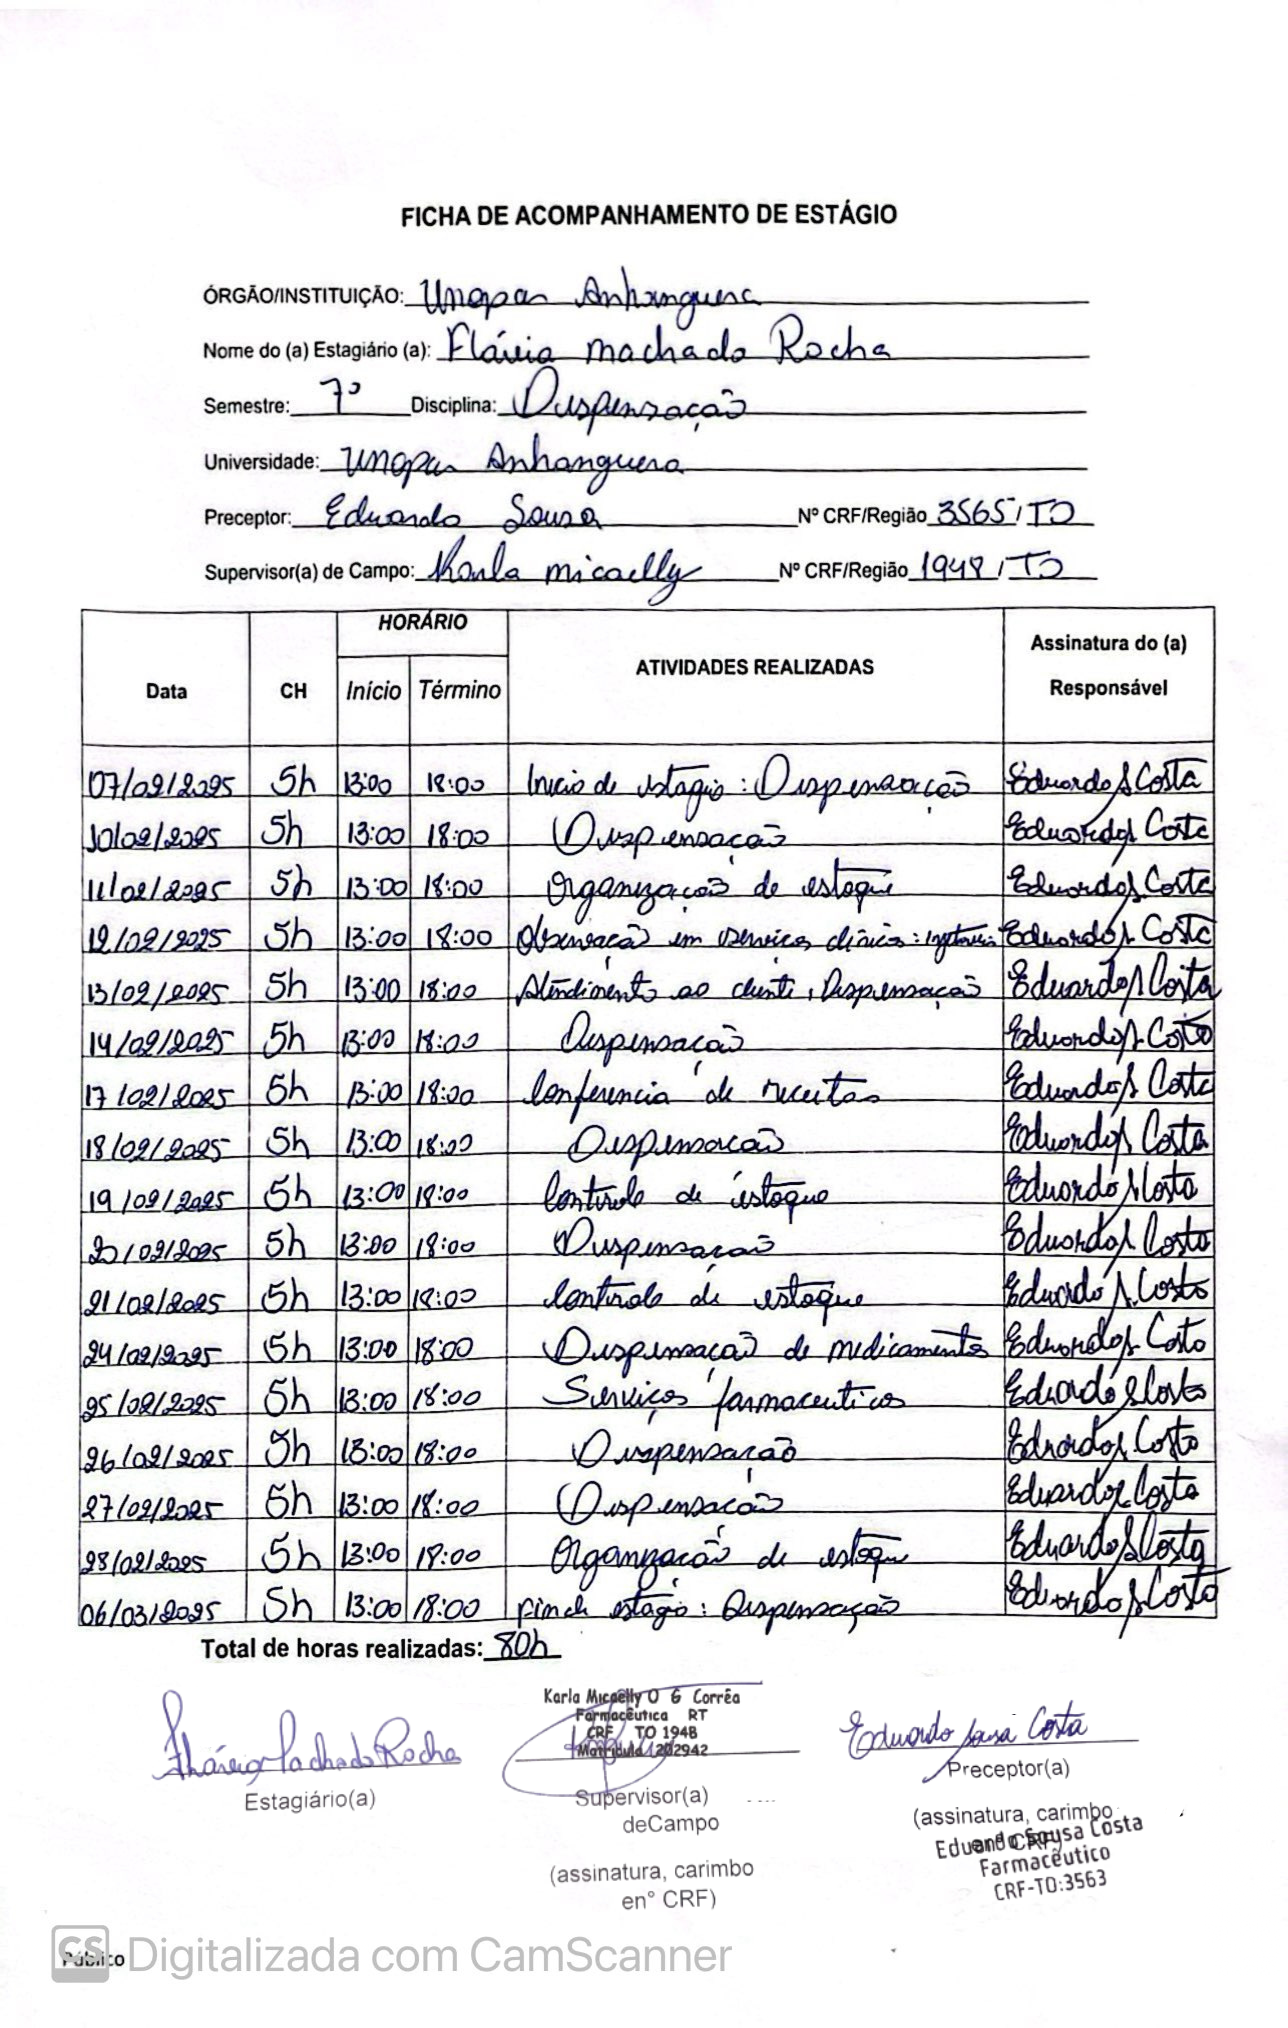 FICHA DE ACOMPANHAMENTO DE ESTÁGIO
ÓRGÃO/INSTITUIÇÃO: Unopar Anhanguera
Nome do (a) Estagiário (a): Flávia Machado Rocha
Semestre: 7º Disciplina: Dispensação
Universidade: Unopar Anhanguera
Preceptor: Eduardo Sousa Nº CRF/Região 3565/TO
Supervisor(a) de Campo: Karla Micaelly Nº CRF/Região 1948/TO
Data CH HORÁRIO Início Término ATIVIDADES REALIZADAS Assinatura do (a) Responsável
07/02/2025 5h 13:00 18:00 Inicio de estagio: Dispensação Eduardo S Costa
10/02/2025 5h 13:00 18:00 Dispensação Eduardo S Costa
11/02/2025 5h 13:00 18:00 Organização de estoque Eduardo S Costa
12/02/2025 5h 13:00 18:00 Observação em serviços clínicos: Eduardo S Costa
13/02/2025 5h 13:00 18:00 Atendimento ao cliente, Dispensação Eduardo S Costa
14/02/2025 5h 13:00 18:00 Dispensação Eduardo S. Costa
17/02/2025 5h 13:00 18:00 Conferencia de receitas Eduardo S Costa
18/02/2025 5h 13:00 18:00 Dispensação Eduardo S Costa
19/02/2025 5h 13:00 18:00 Controle de estoque Eduardo S Costa
20/02/2025 5h 13:00 18:00 Dispensação Eduardo S Costa
21/02/2025 5h 13:00 18:00 Controle de estoque Eduardo S. Costa
24/02/2025 5h 13:00 18:00 Dispensação de medicamentos Eduardo S Costa
25/02/2025 5h 13:00 18:00 Serviços farmaceuticos Eduardo S Costa
26/02/2025 5h 13:00 18:00 Dispensação Eduardo S Costa
27/02/2025 5h 13:00 18:00 Dispensação Eduardo S Costa
28/02/2025 5h 13:00 18:00 Organização de estoque Eduardo S Costa
06/03/2025 5h 13:00 18:00 Fim de estágio: Dispensação Eduardo S Costa
Total de horas realizadas: 80h
Flávia Machado Rocha
Estagiário(a)
Karla Micaelly O G Corrêa
Farmacêutica RT
CRF TO 1948
Matrícula 202942
Supervisor(a)
deCampo
(assinatura, carimbo
en° CRF)
Eduardo Sousa Costa
Preceptor(a)
(assinatura, carimbo
en° CRF)
Eduardo Sousa Costa
Farmacêutico
CRF-TO:3563
Público
CS Digitalizada com CamScanner